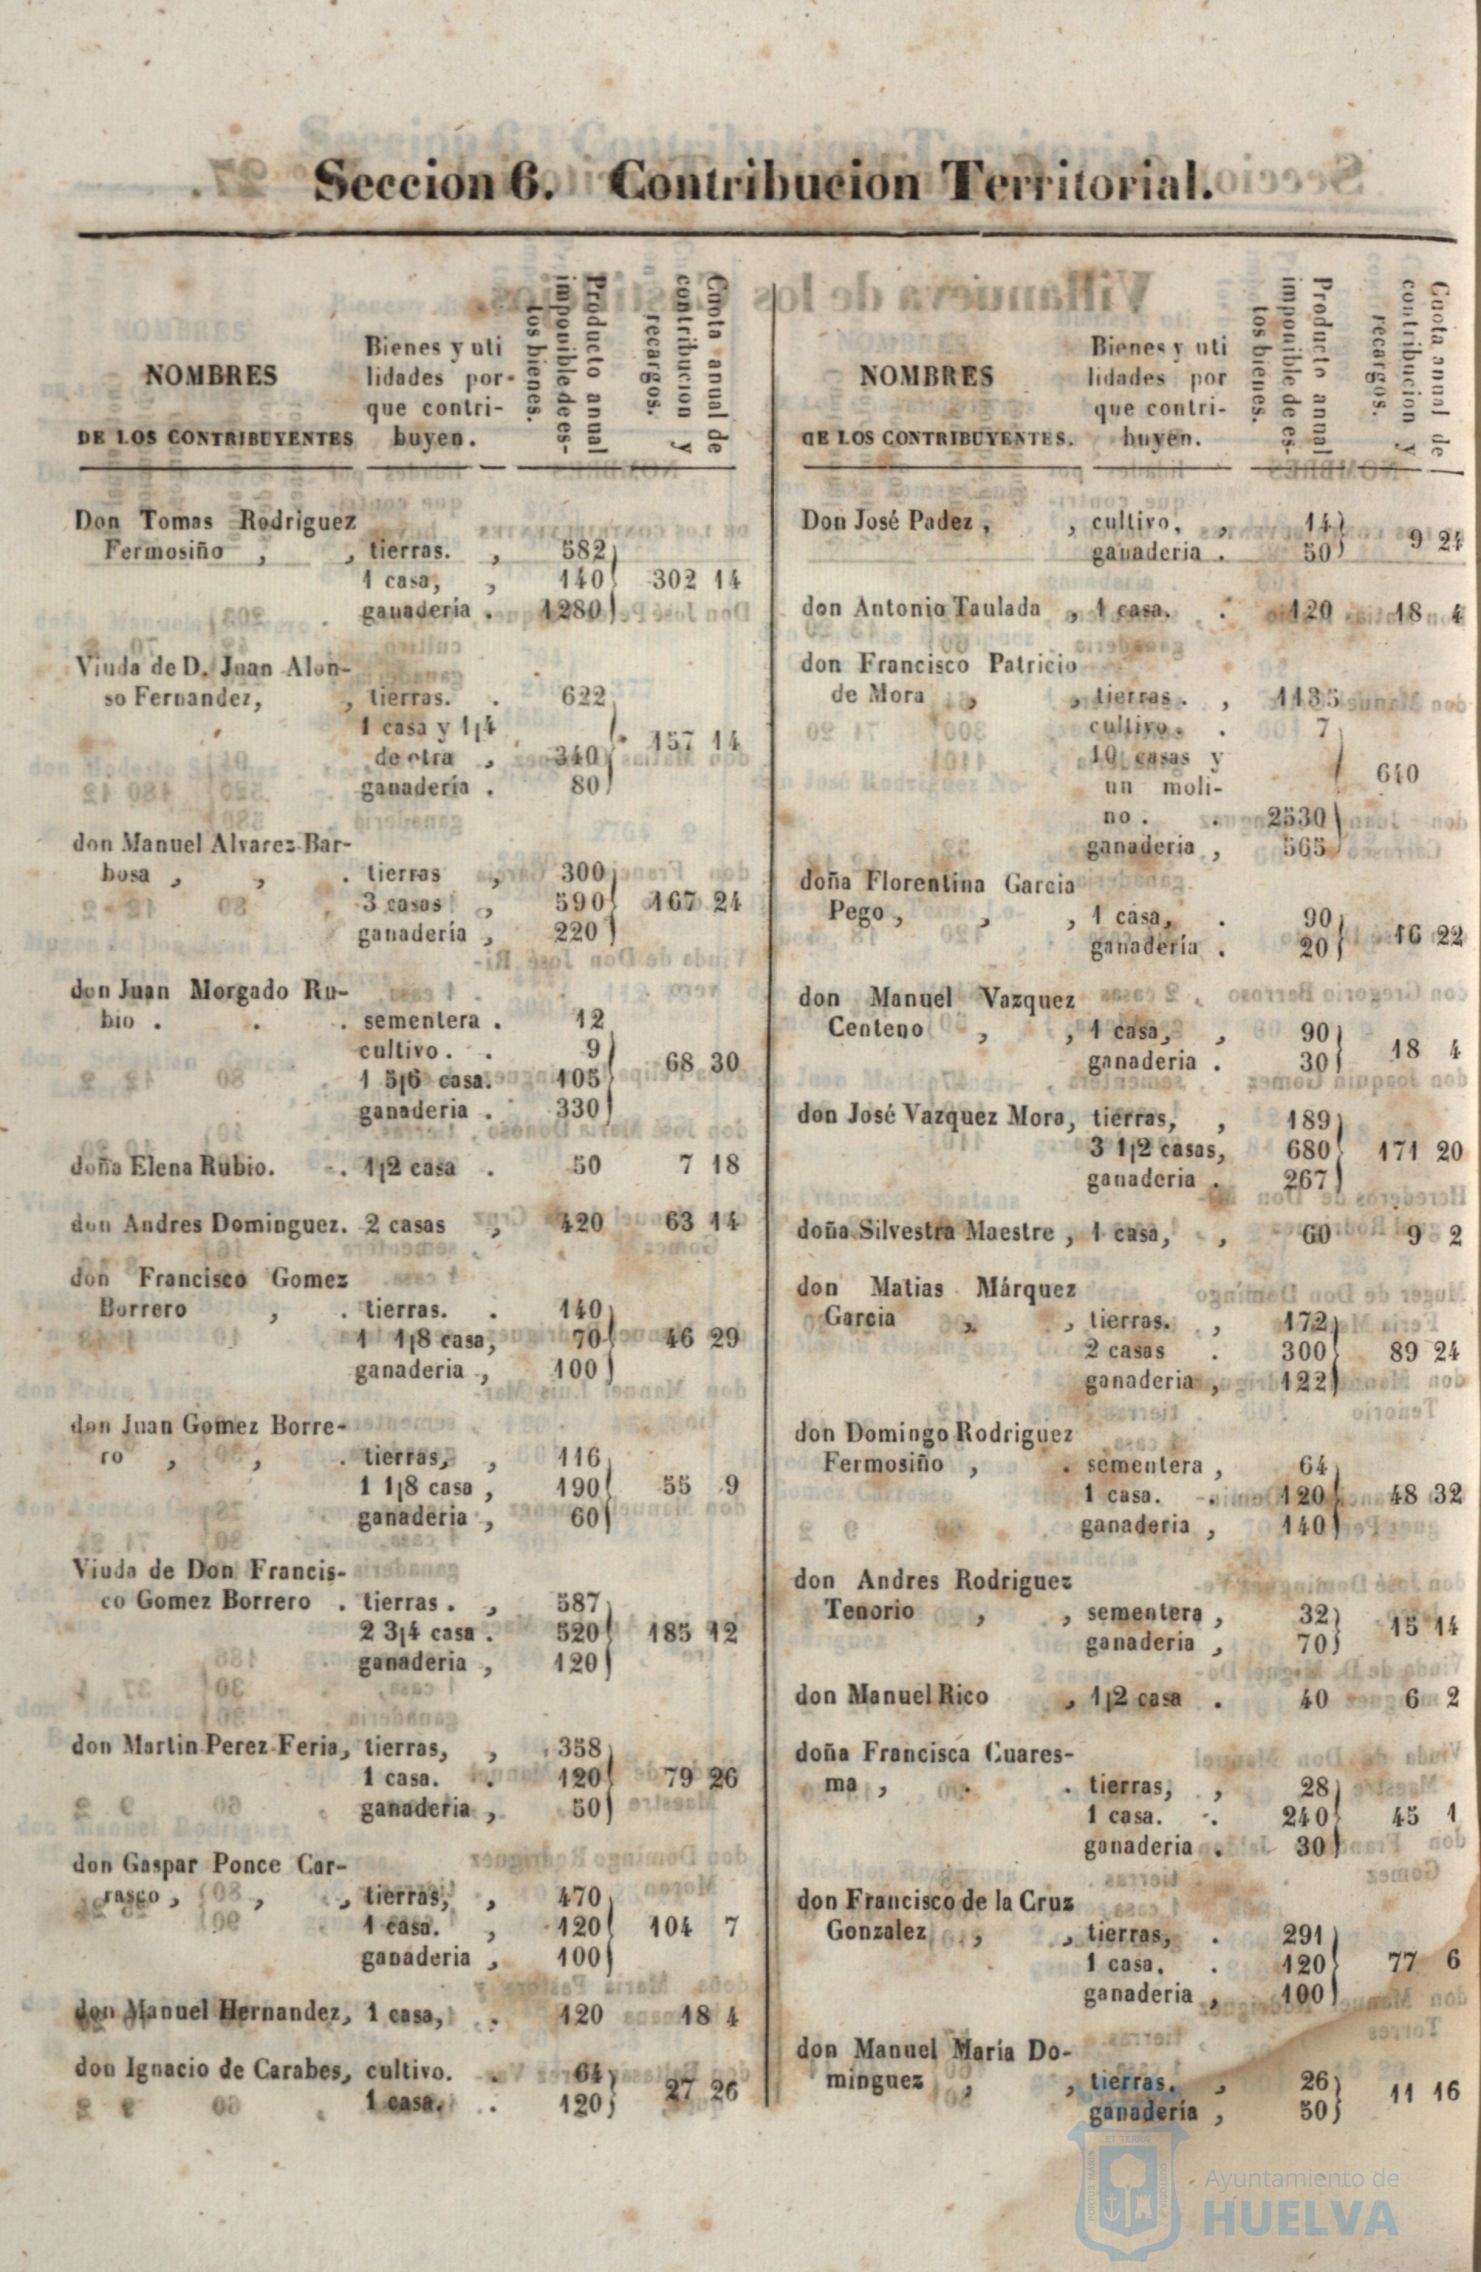 Seccion 6. Contribucion Territorial.
NOMBRES
DE LOS CONTRIBUYENTES
Bienes y uti
lidades por-
que contri-
buyen.
Producto anual
imponible de es-
tos bienes.
Cuota anual de
contribucion y
recargos.
Don Tomas Rodriguez
Fermosiño , , tierras. , 582
1 casa, , 140 302 14
ganadería . 1280
Viuda de D. Juan Alon-
so Fernandez, , tierras. . 622
1 casa y 1¡4
de otra , 340 157 14
ganadería . 80
don Manuel Alvarez Bar-
bosa , , . tierras , 300
3 casas , 590 167 24
ganadería , 220
don Juan Morgado Ru-
bio . . . sementera . 12
cultivo. . 9
1 5¡6 casa. 105 68 30
ganaderia . 330
doña Elena Rubio. . 1¡2 casa . 50 7 18
don Andres Dominguez. 2 casas , 420 63 14
don Francisco Gomez
Borrero , . tierras. . 140
1 1¡8 casa, 70 46 29
ganaderia , 100
don Juan Gomez Borre-
ro , , . tierras, , 116
1 1¡8 casa , 190 55 9
ganaderia , 60
Viuda de Don Francis-
co Gomez Borrero . tierras . , 587
2 3¡4 casa . 520 185 12
ganaderia , 120
don Martin Perez Feria, tierras, , 358
1 casa. . 120 79 26
ganaderia , 50
don Gaspar Ponce Car-
rasco , , , tierras, , 470
1 casa. , 120 104 7
ganaderia , 100
don Manuel Hernandez, 1 casa, . 120 18 4
don Ignacio de Carabes, cultivo. . 64
1 casa. . 120 27 26
NOMBRES
DE LOS CONTRIBUYENTES.
Bienes y uti
lidades por
que contri-
buyen.
Producto anual
imponible de es-
tos bienes.
Cuota anual de
contribucion y
recargos.
Don José Padez , , cultivo, , 14
ganaderia . 50 9 24
don Antonio Taulada , 1 casa. . 120 18 4
don Francisco Patricio
de Mora , , tierras . , 1135
cultivo. . 7
10 casas y
un moli- 640
no . . 2530
ganaderia , 565
doña Florentina Garcia
Pego , , , 1 casa, . 90
ganadería . 20 16 22
don Manuel Vazquez
Centeno , , 1 casa, , 90
ganaderia . 30 18 4
don José Vazquez Mora, tierras, , 189
3 1¡2 casas, 680 171 20
ganaderia . 267
doña Silvestra Maestre , 1 casa, , 60 9 2
don Matias Márquez
Garcia , , tierras. , 172
2 casas . 300 89 24
ganaderia , 122
don Domingo Rodriguez
Fermosiño , . sementera , 64
1 casa. . 120 48 32
ganaderia , 140
don Andres Rodriguez
Tenorio , , sementera , 32
ganaderia , 70 15 14
don Manuel Rico , 1¡2 casa . 40 6 2
doña Francisca Cuares-
ma , . . tierras, , 28
1 casa. . 240 45 1
ganaderia . 30
don Francisco de la Cruz
Gonzalez , , tierras, . 291
1 casa. . 120 77 6
ganaderia , 100
don Manuel María Do-
minguez , , tierras. , 26
ganadería , 50 11 16
Ayuntamiento de
HUELVA